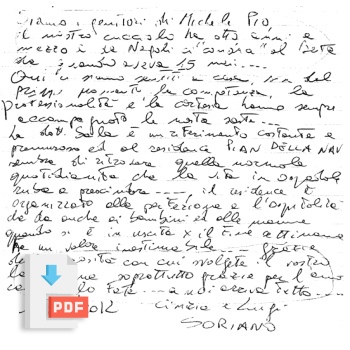 Siamo i genitori di Michele Pio,
il nostro cucciolo ha otto anni e
mezzo e da Napoli si "cura" al Gaslini
da 15 mesi....
Qui ci siamo sentiti a casa sin dal
primo momento la competenza, la
professionalità e la cortesia hanno sempre
accompagnato la nostra sosta....
La dott. è un riferimento costante e
premuroso ed al residence PIAN DELLA NAV
sembra di ritrovare quella normale
quotidianità che la vita in ospedale
ruba a prescindere...., il residence è
organizzato alla perfezione e l'ospitalità
data anche ai bambini ed alle mamme
quando si è in uscita x il fine settimana
ha un valore inestimabile.... Grazie
con cui svolgete il vostro
soprattutto grazie per l'amore
PDF
Cinzia e Luigi
SORIANO